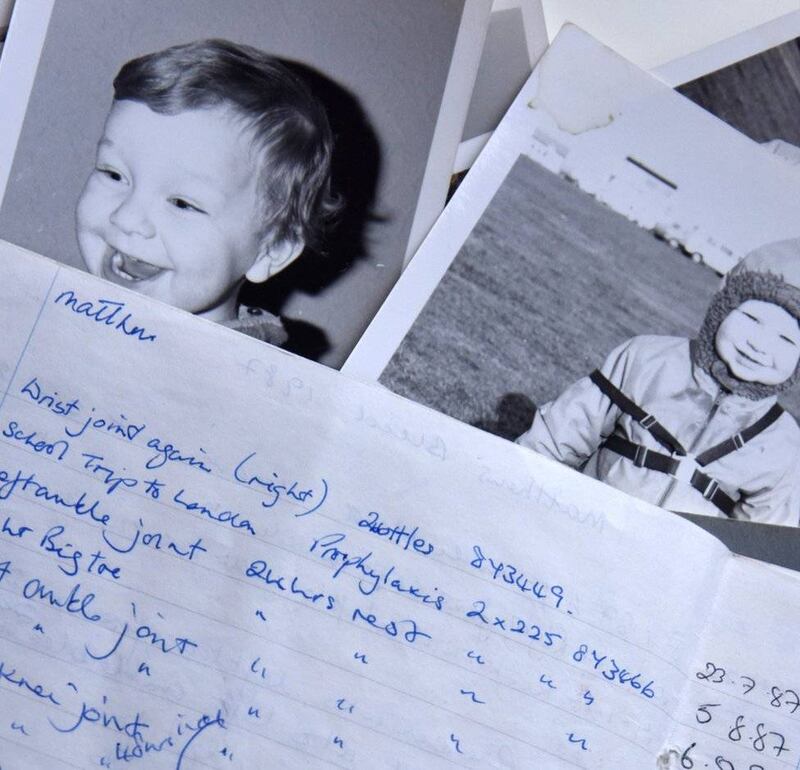 matthew
Wrist joint again (right) 2 bottles 843449.
school Trip to London Prophylaxis 2x225 843466
ankle joint 24hrs rest " " "
Big toe " " " "
ankle joint " " "
" " " " "
knee joint
" "
23.7.87
5 8.87
6.